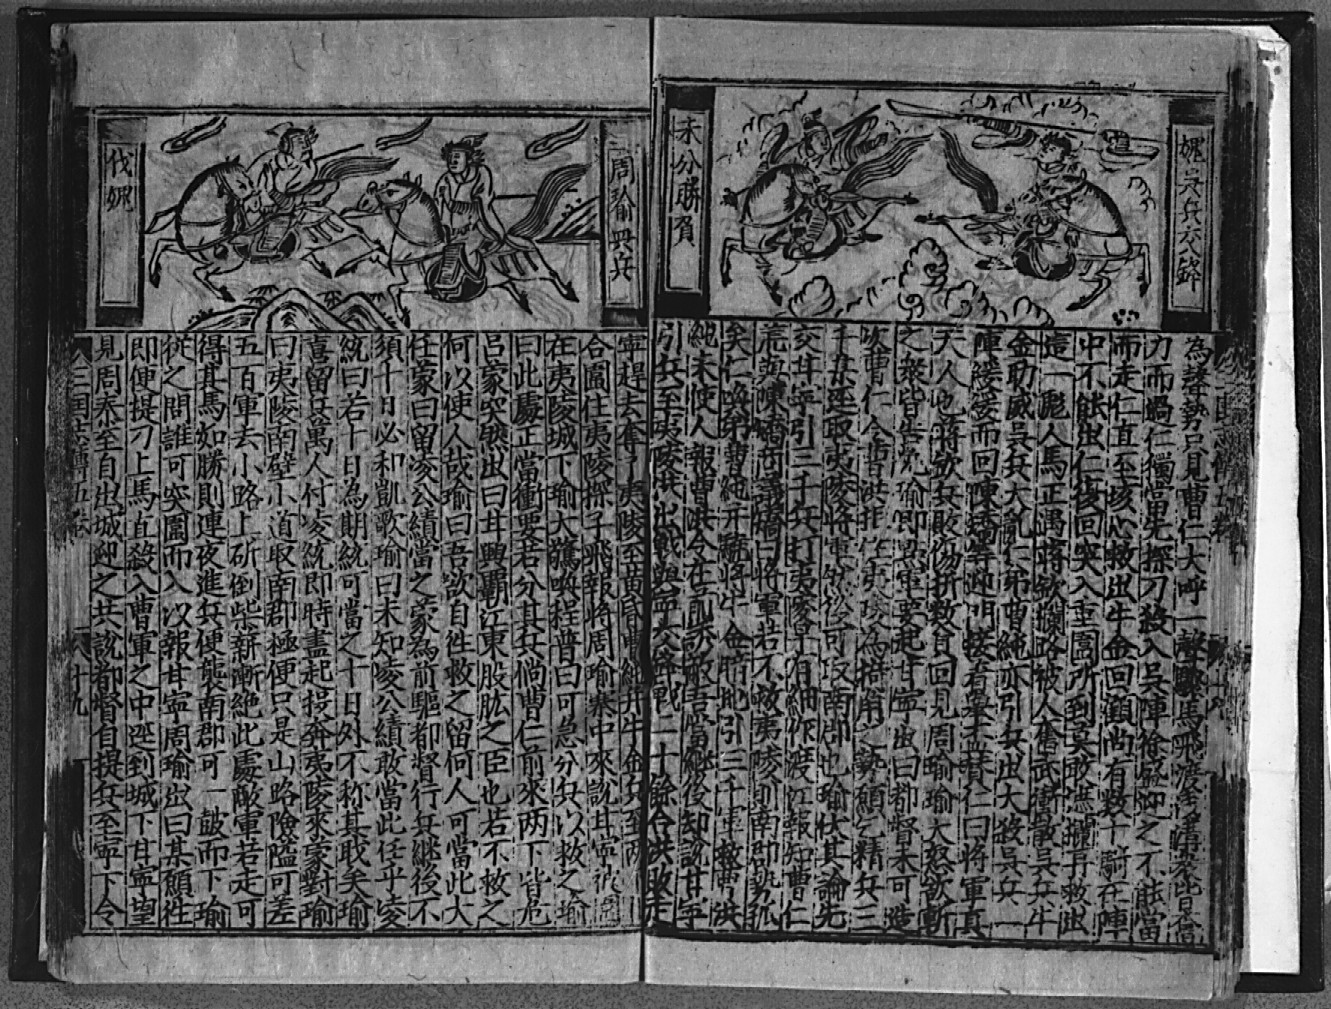 魏吳兵交鋒
未分勝負
為聲勢只見曹仁大呼一聲驟馬飛渡
力而過仁獨當先探刀殺入吳陣徐盛迎之不能當
而走仁直至垓心救出牛金回顧尚有數十騎在陣
中不能出仁復回突入重圍所到莫敢遮攔再救出
這一彪人馬正遇蔣欽攔路被人奮武衝散吳兵牛
金助威吳兵大亂仁弟曹純亦引兵出大殺吳兵一
陣緩緩而回陳矯等迎門接有羣臣賛仁曰將軍真
天人也蔣欽兵敗傷折數員回見周瑜瑜大怒欽斬
之衆皆告免瑜即點軍要起甘寧出曰都督未可造
次曹仁令曹洪拒住夷陵為掎角之勢願乞精兵三
千兵逕取夷陵將軍然後可取南郡也瑜伏其論先
交甘寧引三千兵打夷陵早有細作渡江報知曹仁
荒與陳矯商議矯曰將軍若不救夷陵則南郡勢孤
矣仁喚弟曹純并驍將牛金暗地引三千軍救曹洪
純未使人報曹洪令在前誘敵吾當繼後却說甘寧
引兵至夷陵洪出戰與孟夫交戰二十餘合洪敗走
周瑜興兵
伐魏
寧趕去奪了夷陵至黃昏曹純并牛金兵至兩
合圍住夷陵探子飛報將周瑜寨中來說甘寧被圍
在夷陵城下瑜大驚喚程普曰可急分兵以救之瑜
曰此處正當衝要若分其兵倘曹仁前來两下皆危
呂蒙突然出曰甘興霸江東股肱之臣也若不救之
何以使人哉瑜曰吾欲自徃救之留何人可當此大
任蒙曰留凌公績當之蒙為前驅都督行兵継後不
須十日必和凱歌瑜曰未知凌公績敢當此任乎凌
統曰若十日為期統可當之十日外不称其職矣瑜
喜留兵萬人付凌統即時盡起投奔夷陵來蒙對瑜
曰夷陵南壁小道取南郡極便只是山路險隘可差
五百軍去小路上斫倒柴薪漸絶此處敵軍若走可
得其馬如勝則連夜進兵便襲南郡可一皷而下瑜
從之問誰可突圍而入以報甘寧周瑜出曰某願徃
即便提刀上馬直殺入曹軍之中逕到城下甘寧望
見周泰至自出城迎之共說都督自提兵至寧下令
三國志傳五卷
八十九